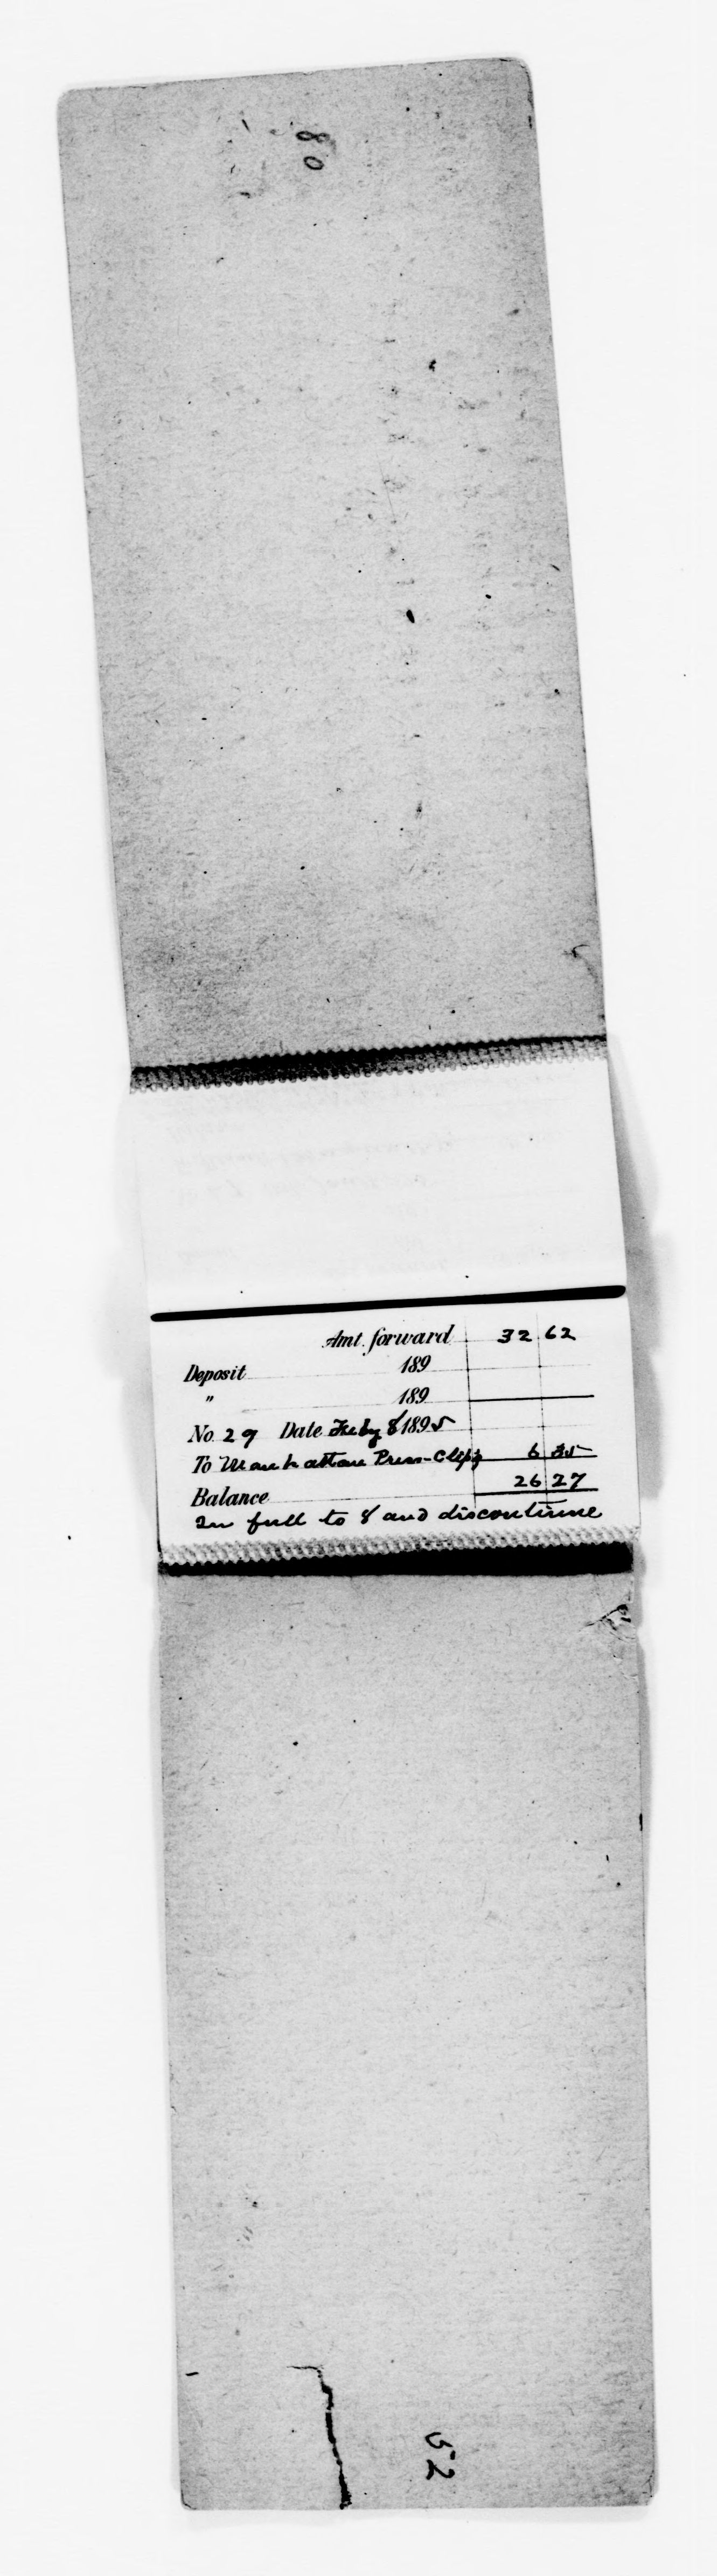 80
Amt. forward 32 62
Deposit 189
" 189
No. 29 Date Feby 8 1895
To Manhattan Press-Clip'g 6 35
Balance 26 27
In full to 8 and discontinue
52